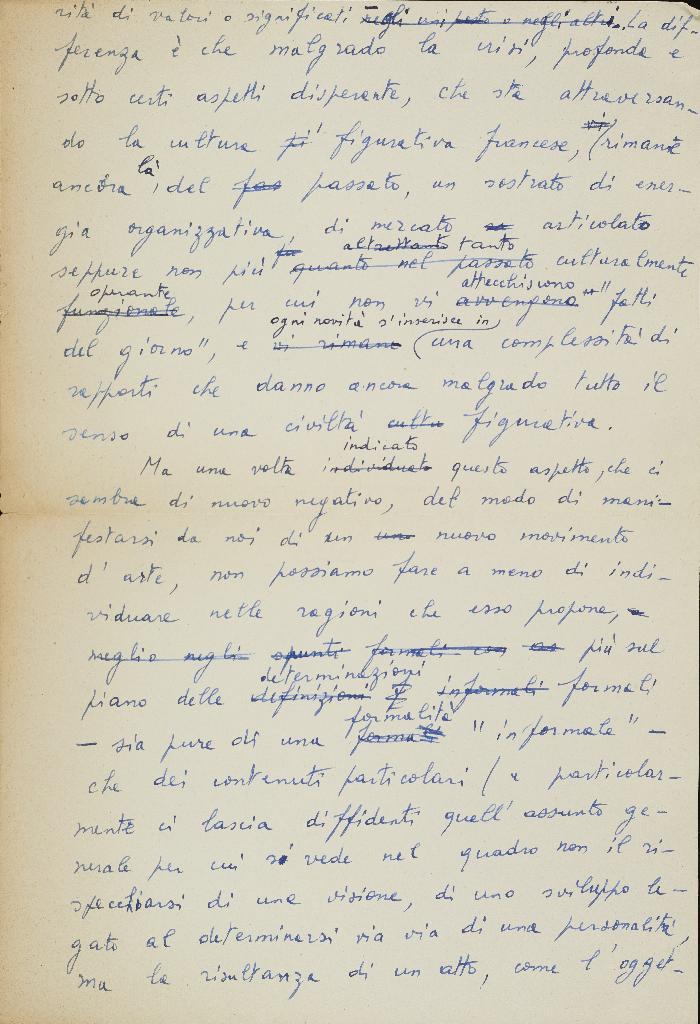 rità di valori o significati negli uni posto o negli altri. La dif-
ferenza è che malgrado la crisi, profonda e
sotto certi aspetti disperante, che sta attraversan-
do la cultura figurativa francese, vi (rimane
ancora là, del fas passato, un sostrato di ener-
gia organizzativa, di mercato articolato
altrettanto tanto
seppure non più quanto nel passato culturalmente
operante attecchiscono
funzionale, per cui non vi avvengono "" fatti
ogni novità s'inserisce in
del giorno", e vi rimane (una complessità di
rapporti che danno ancora malgrado tutto il
senso di una civiltà cultu figurativa.
indicato
Ma una volta individuato questo aspetto, che ci
sembra di nuovo negativo, del modo di mani-
festarsi da noi di un un nuovo movimento
d'arte, non possiamo fare a meno di indi-
viduare nelle ragioni che esso propone,
meglio negli spunti formali con più sul
determinazioni
piano delle definizioni informali formali
formalità
- sia pure di una formale "informale" -
che dei contenuti particolari (e particolar-
mente ci lascia diffidenti quell'assunto ge-
nerale per cui si vede nel quadro non il ri-
specchiarsi di una visione, di uno sviluppo le-
gato al determinarsi via via di una personalità,
ma la risultanza di un atto, come l'ogget-